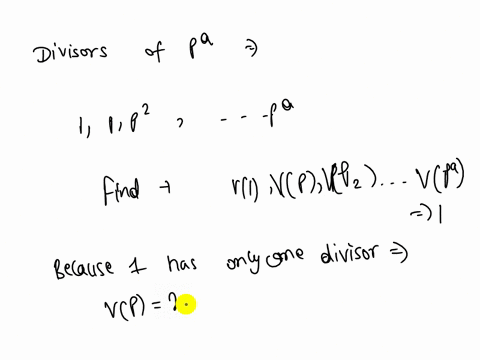 Divisors of p^a ⇒
1, p, p^2, - - - p^a
find → V(1), V(p), V(p^2) ... V(p^a)
⇒ 1
Because 1 has only one divisor ⇒
V(p) = 2